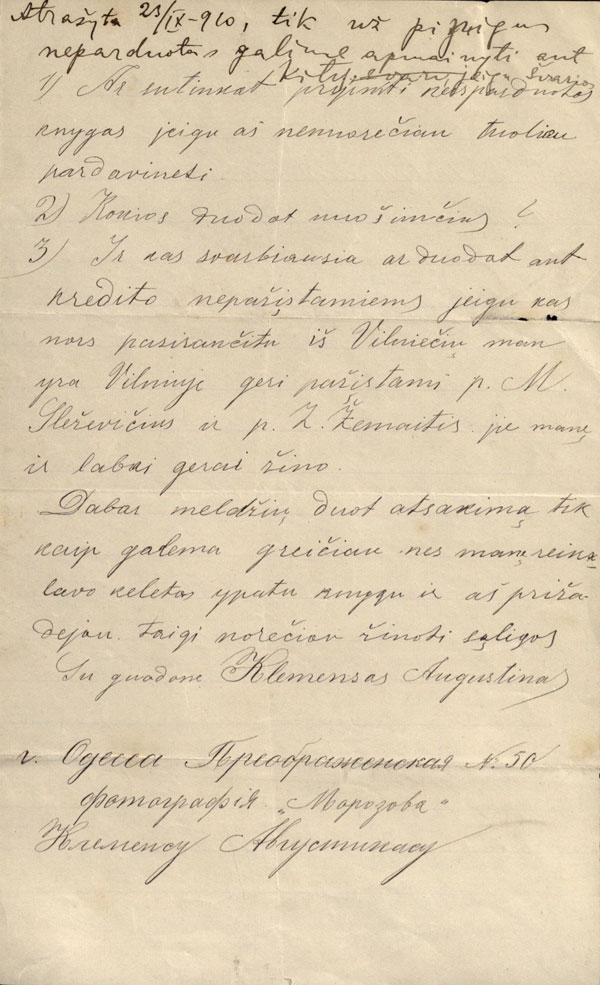 Atrašyta 23/IX-910, tik už pinigus
neparduotas galime apmainyti ant
kitų svarių, jeigu švarios
1) Ar sutinkat pryimti neisparduotas
knygas jeigu aš nemorečiau tuoliau
pardavineti
2) Kokios duodat nuošimčius?
3) Ir kas svarbiausia ar duodat ant
kredito nepažįstamiems jeigu kas
nors pasirančitu iš Vilniečių man
yra Vilniuje geri pažįstami p. M.
Sleževičius ir p. Z. Žemaitis. jie manę
ir labai gerai žino.
Dabar meldžių duot atsakimą tik
kaip galema greičiau nes manę reika-
lavo keletas ypatu knygu ir aš priža-
dejau. taigi norečiau žinoti sąligos
Su guodone Klemensas Augustinas
г. Одесса Преображенская № 50
фотографія „Морозова“
Клеменсу Августинасу